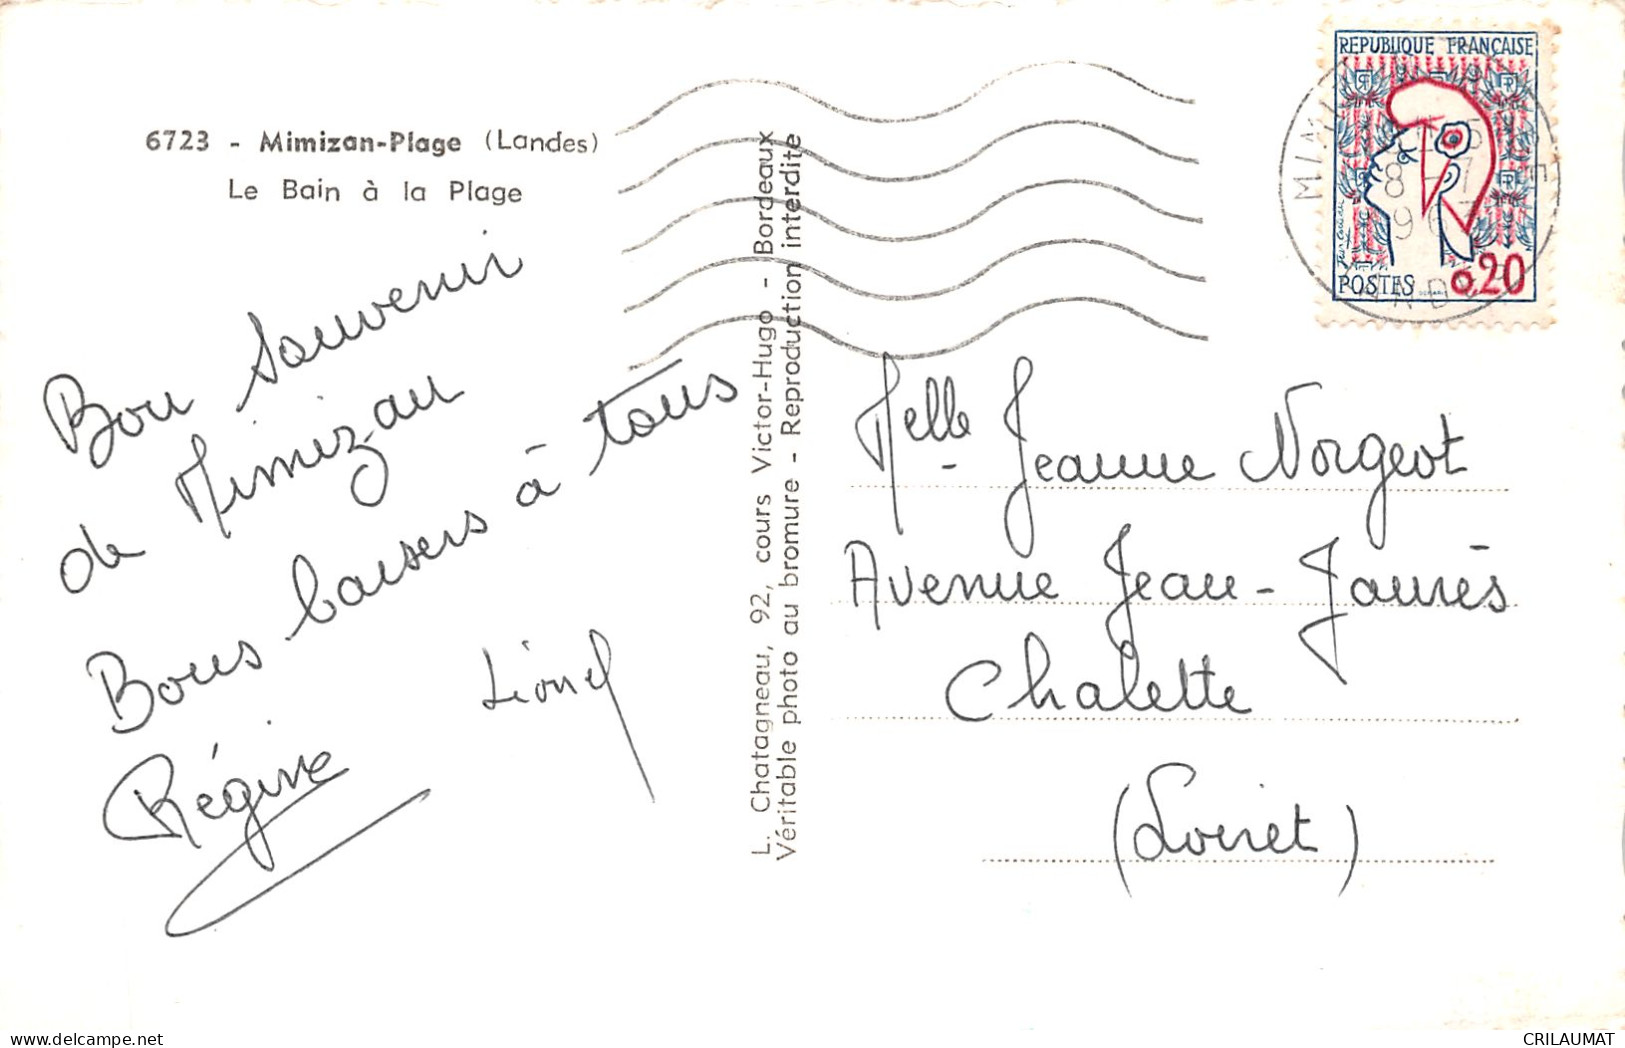 6723 - Mimizan-Plage (Landes)
Le Bain à la Plage
Bon Souvenir
de Mimizan
Bons baisers à tous
Lionel
Régine
L. Chatagneau, 92, cours Victor-Hugo - Bordeaux
Véritable photo au bromure - Reproduction interdite
REPUBLIQUE FRANÇAISE
POSTES 0,20
Melle Jeanne Norgeot
Avenue Jean-Jaurès
Chalette
(Loiret)
CRILAUMAT